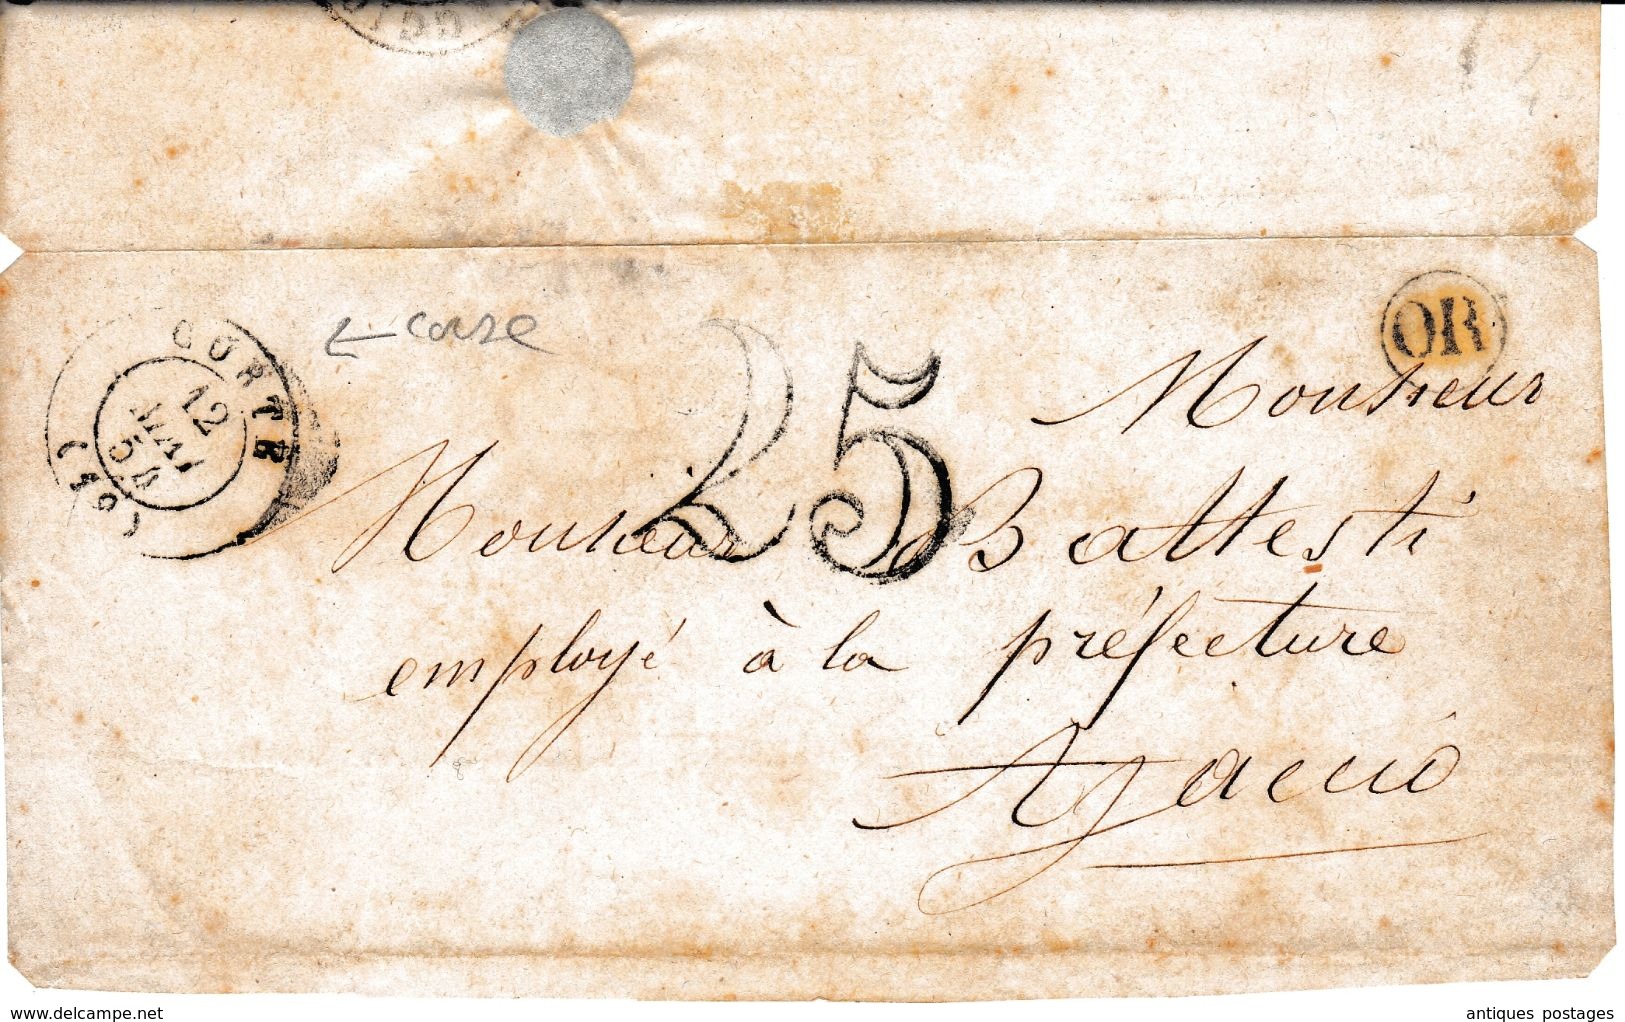 CORTE
12
MAI
54
(19)
← corse
25
OR
Monsieur
Monsieur Battesti
employé à la préfecture
Ajaccio
delcampe.net
antiques postages